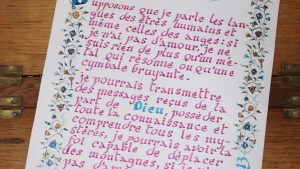 upposons que je parle les lan-
gues des êtres humains et
même celles des anges: si
je n'ai pas d'amour, je ne
suis rien de plus qu'un mé-
tal qui résonne ou qu'une
cymbale bruyante.
je pourrais transmettre
des messages reçus de la
part de Dieu, posséder
toute la connaissance et
comprendre tous les mys-
tères, je pourrais avoir la
foi capable de déplacer
des montagnes, si je n'ai
pas d'am